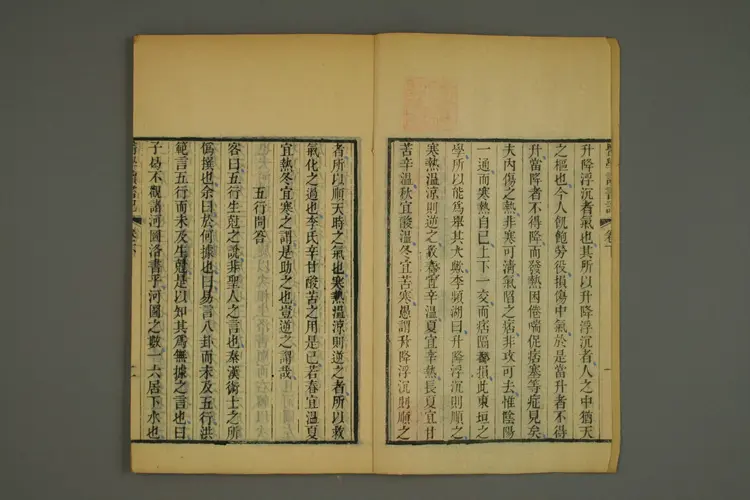 升降浮沉者氣也其所以升降浮沉者人之中猶天
之樞也今人飢飽勞役損傷中氣於是當升者不得
升當降者不得降而發熱困倦喘促痞塞等症見矣
夫內傷之熱非寒可清氣陷之痞非攻可去惟陰陽
一通而寒熱自已上下一交而痞隔都損此東垣之
學所以能爲舉其大歟李頻湖曰升降浮沉則順之
寒熱溫涼則逆之故春宜辛溫夏宜辛熱長夏宜甘
苦辛溫秋宜酸溫冬宜苦寒愚謂升降浮沉則順之
者所以順天時之氣也寒熱溫涼則逆之者所以救
氣化之過也李氏辛甘酸苦之用是已若春宜溫夏
宜熱冬宜寒之謂是助之也豈逆之謂哉
五行問答
客曰五行生尅之說非聖人之言也秦漢術士之所
僞撰也余曰於何據也曰易言八卦而未及五行洪
範言五行而未及生尅是以知其爲無據之言也曰
子曷不觀諸河圖洛書乎河圖之數一六居下水也
醫學讀書記
卷下
一